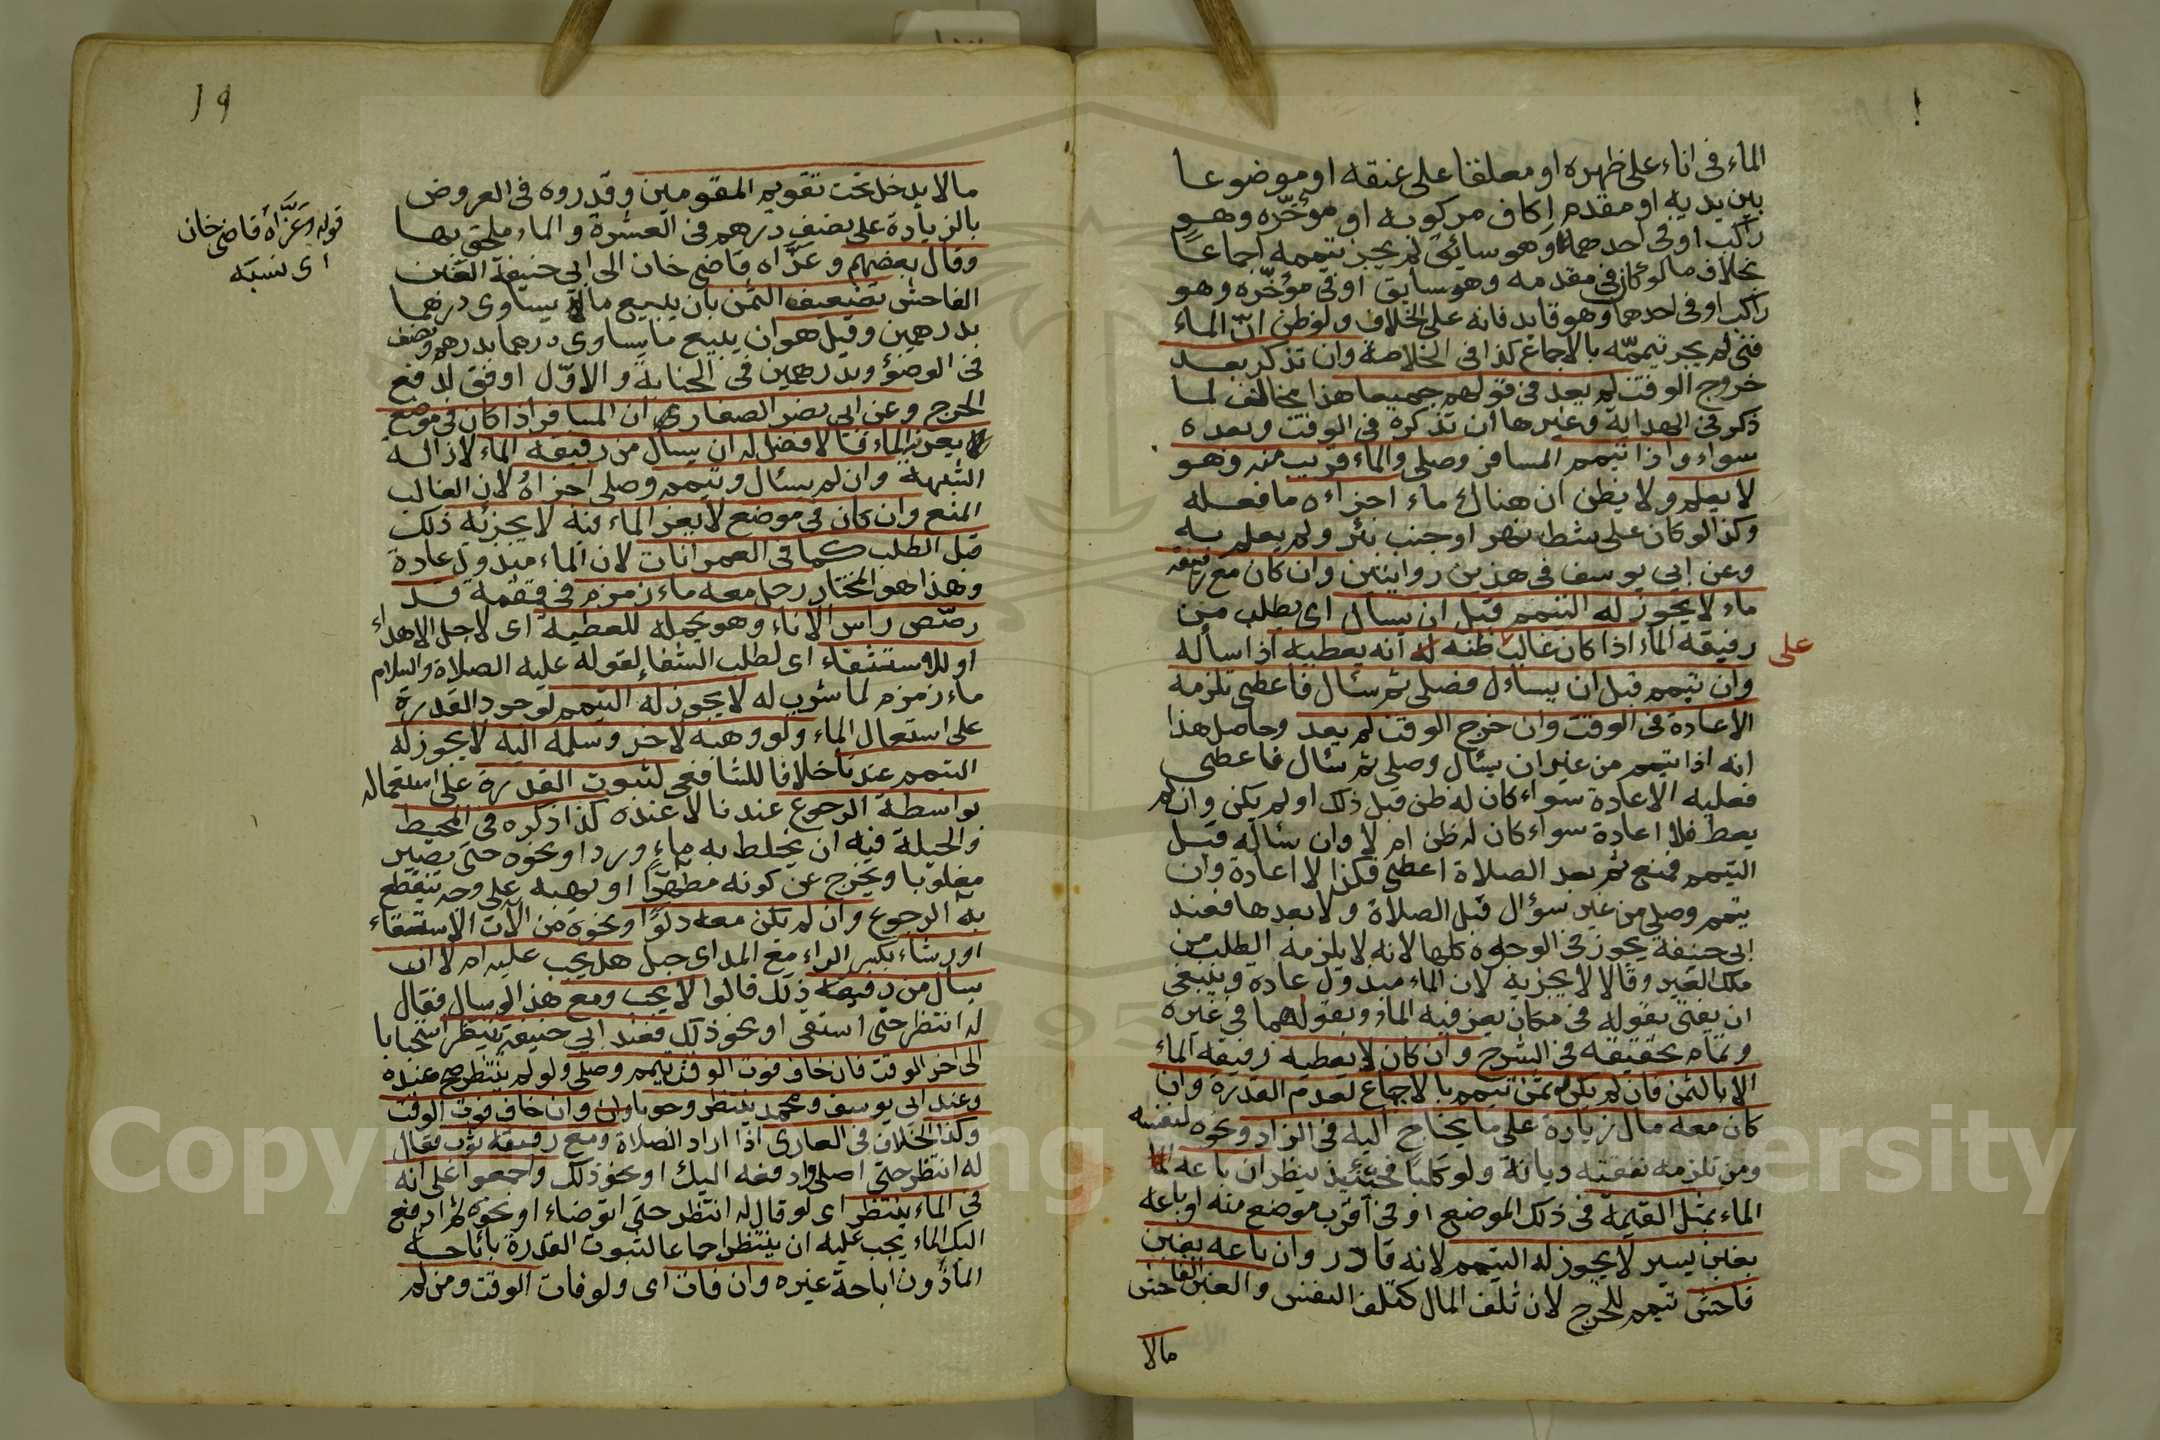 الماء فى اناء على ظهره او معلقا على عنقه او موضوعا
بين يديه او مقدم اكاف مركوبه او مؤخّره وهو
راكب او فى احدهما وهو سائق لم يجز تيممه اجماعًا
بخلاف ما لو كان فى مقدمه وهو سايق او فى مؤخّره وهو
راكب او فى احدهما وهو قايد فانه على الخلاف ولو ظن انّ الماء
فنى لم يجز تيممّه بالاجماع كذا فى الخلاصة وان تذكر بعد
خروج الوقت لم يعد فى قولهم جميعا هذا مخالف لما
ذكر فى الهداية وغيرها ان تذكره فى الوقت وبعده
سواء واذا تيمم المسافر وصلى والماء قريب منه وهو
لا يعلم ولا يظن ان هناك ماء اجزاءه ما فعله
وكذا لو كان على شط نهر او جنب بئر ولم يعلم به
وعن ابى يوسف فى هذين روايتين وان كان مع رفيقه
ماء لا يجوز له التيمم قبل ان يسال اى يطلب من
رفيقه الماء اذا كان غالب ظنه انه يعطيه اذا ساله
على
وان تيمم قبل ان يساءل فصلى ثم سئال فاعطى تلزمه
الاعادة فى الوقت وان خرج الوقت لم يعد وحاصل هذا
انه اذا تيمم من غير ان يسئال وصلى ثم سئال فاعطى
فعليه الاعادة سواء كان له ظن قبل ذلك او لم يكن وان لم
يعط فلا اعادة سواء كان له ظن ام لا وان سئاله قبل
التيمم فمنع ثم بعد الصلاة اعطى فكذا لا اعادة وان
تيمم وصلى من غير سؤال قبل الصلاة ولا بعدها فعند
ابى حنيفة يجوز فى الوجوه كلها لانه لا يلزمه الطلب من
ملك الغير وقالا لا يجزيه لان الماء مبذول عادة وينبغى
ان يفتى بقوله فى مكان يعز فيه الماء وبقولهما فى غيره
وتمام تحقيقه فى الشرح وان كان لا يعطيه رفيقه الماء
الا بالثمن فان لم يكن له ثمن تيمم بالاجماع لعدم القدرة وان
كان معه مال زيادة على ما يحتاج اليه فى الزاد ونحوه لنفسه
ومن تلزمه نفقته ديانة ولو كلبا فحينئذ ينظر ان باعه
الماء بمثل القيمة فى ذلك الموضع او فى اقرب موضع منه او باعه
بغبن يسير لا يجوز له التيمم لانه قادر وان باعه بغبن
فاحش تيمم للحرج لان تلف المال كتلف النفس والغبن الفاحش
مالا
19
مالا يدخل تحت تقويم المقومين وقدروه فى العروض
بالزيادة على نصف درهم فى العشرة والماء ملحق بها
وقال بعضهم وعزّاه قاضى خان الى ابى حنيفة الغبن
الفاحش تضعيف الثمن بان يبيع ما يساوى درهما
بدرهمين وقيل هو ان يبيع ما يساوى درهما بدرهم ونصف
فى الوضؤ وبدرهمين فى الجنابة والاوّل اوفق لدفع
الحرج وعن ابى نصر الصفار ان المسافر اذا كان فى موضع
يعز الماء فالافضل له ان يسأل من رفيقه الماء لازالة
الشبهة وان لم يسئال وتيمم وصلى اجزاهُ لان الغالب
المنع وان كان فى موضع لا يعز الماء فيه لا يجزيه ذلك
قبل الطلب كما فى العمرانات لان الماء مبذول عادة
وهذا هو المختار رجل معه ماء زمزم فى قمقمة قد
رصّص راس الاناء وهو يحمله للعطية اى لاجل الاهداء
او للاستشفاء اى لطلب الشفاء لقوله عليه الصلاة والسلام
ماء زمزم لما شرب له لا يجوز له التيمم لوجود القدرة
على استعمال الماء ولو وهبه لاخر وسلمه اليه لا يجوز له
التيمم عندنا خلافا للشافعى لثبوت القدرة على استعماله
بواسطة الرجوع عندنا لا عنده كذا ذكره فى المحيط
والحيلة فيه ان يخلط به ماء ورد او نحوه حتى يصير
مغلوبا ويخرج عن كونه مطهّرًا او يهبه على وجه ينقطع
به الرجوع وان لم تكن معه دلوًا ونحوه من الآت الاستقاء
او رشاء بكسر الراء مع المد اى حبل هل يجب عليه ام لا ان
يسال من رفيقه ذلك قالوا لا يجب ومع هذا لو سال فقال
له انتظر حتى استقى او نحو ذلك فعند ابى حنيفة ينتظر استحبابا
الى اخر الوقت فان خاف فوت الوقت تيمم وصلى ولو لم ينتظر صح عنده
وعند ابى يوسف ومحمد ينتظر وجوبا وان خاف فوت الوقت
وكذا الخلاف فى العارى اذا اراد الصلاة ومع رفيقه ثوب فقال
له انتظر حتى اصلى وادفعه اليك او نحو ذلك واجمعوا على انه
فى الماء ينتظر اى لو قال له انتظر حتى اتوضاء او نحوه ثم ادفع
اليك الماء يجب عليه ان ينتظر اجماعا لثبوت القدرة باباحة
الماذون اباحة غيره وان فات اى ولو فات الوقت ومن لم
قوله وعَزَّاهُ قاضى خان
اى نسبَه
Copyright King Saud University
195